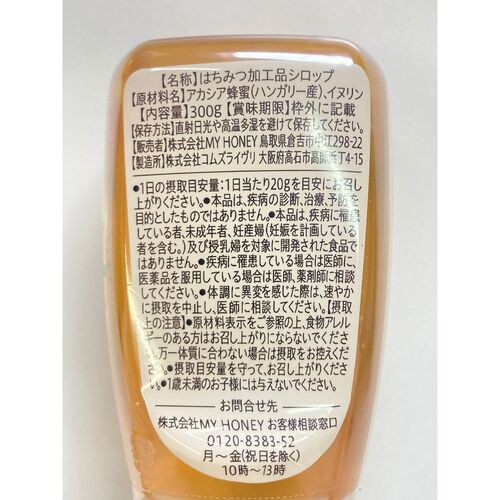 【名称】はちみつ加工品シロップ
【原材料名】アカシア蜂蜜(ハンガリー産)、イヌリン
【内容量】300g【賞味期限】枠外に記載
【保存方法】直射日光や高温多湿を避けて保存してください。
【販売者】株式会社MY HONEY 鳥取県倉吉市中江298-22
【製造所】株式会社コムズライヴリ 大阪府高石市高師浜丁4-15
●1日の摂取目安量:1日当たり20gを目安にお召し
上がりください。●本品は、疾病の診断、治療、予防を
目的としたものではありません。●本品は、疾病に罹患
している者、未成年者、妊産婦(妊娠を計画している
者を含む。)及び授乳婦を対象に開発された食品で
はありません。●疾病に罹患している場合は医師に、
医薬品を服用している場合は医師、薬剤師に相談
してください。●体調に異変を感じた際は、速やか
に摂取を中止し、医師に相談してください。【摂取
上の注意】●原材料表示をご参照の上、食物アレル
ギーのある方はお召し上がりにならないでくださ
い。万一体質に合わない場合は摂取をお控えくだ
さい。●摂取目安量を守って、お召し上がりください。
●1歳未満のお子様には与えないでください。
お問合せ先
株式会社MY HONEY お客様相談窓口
0120-8383-52
月〜金(祝日を除く)
10時〜13時